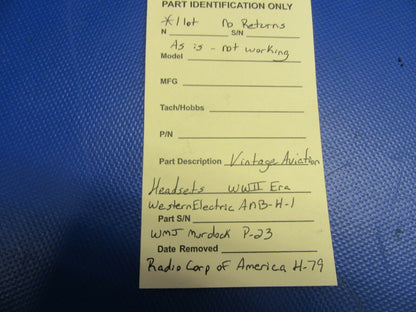 PART IDENTIFICATION ONLY
*1 lot No Returns
N S/N
As is - not working
Model
MFG
Tach/Hobbs
P/N
Part Description Vintage Aviation
Headsets WWII Era
Western Electric ANB-H-1
Part S/N
WMJ Murdock P-23
Date Removed
Radio Corp of America H-79